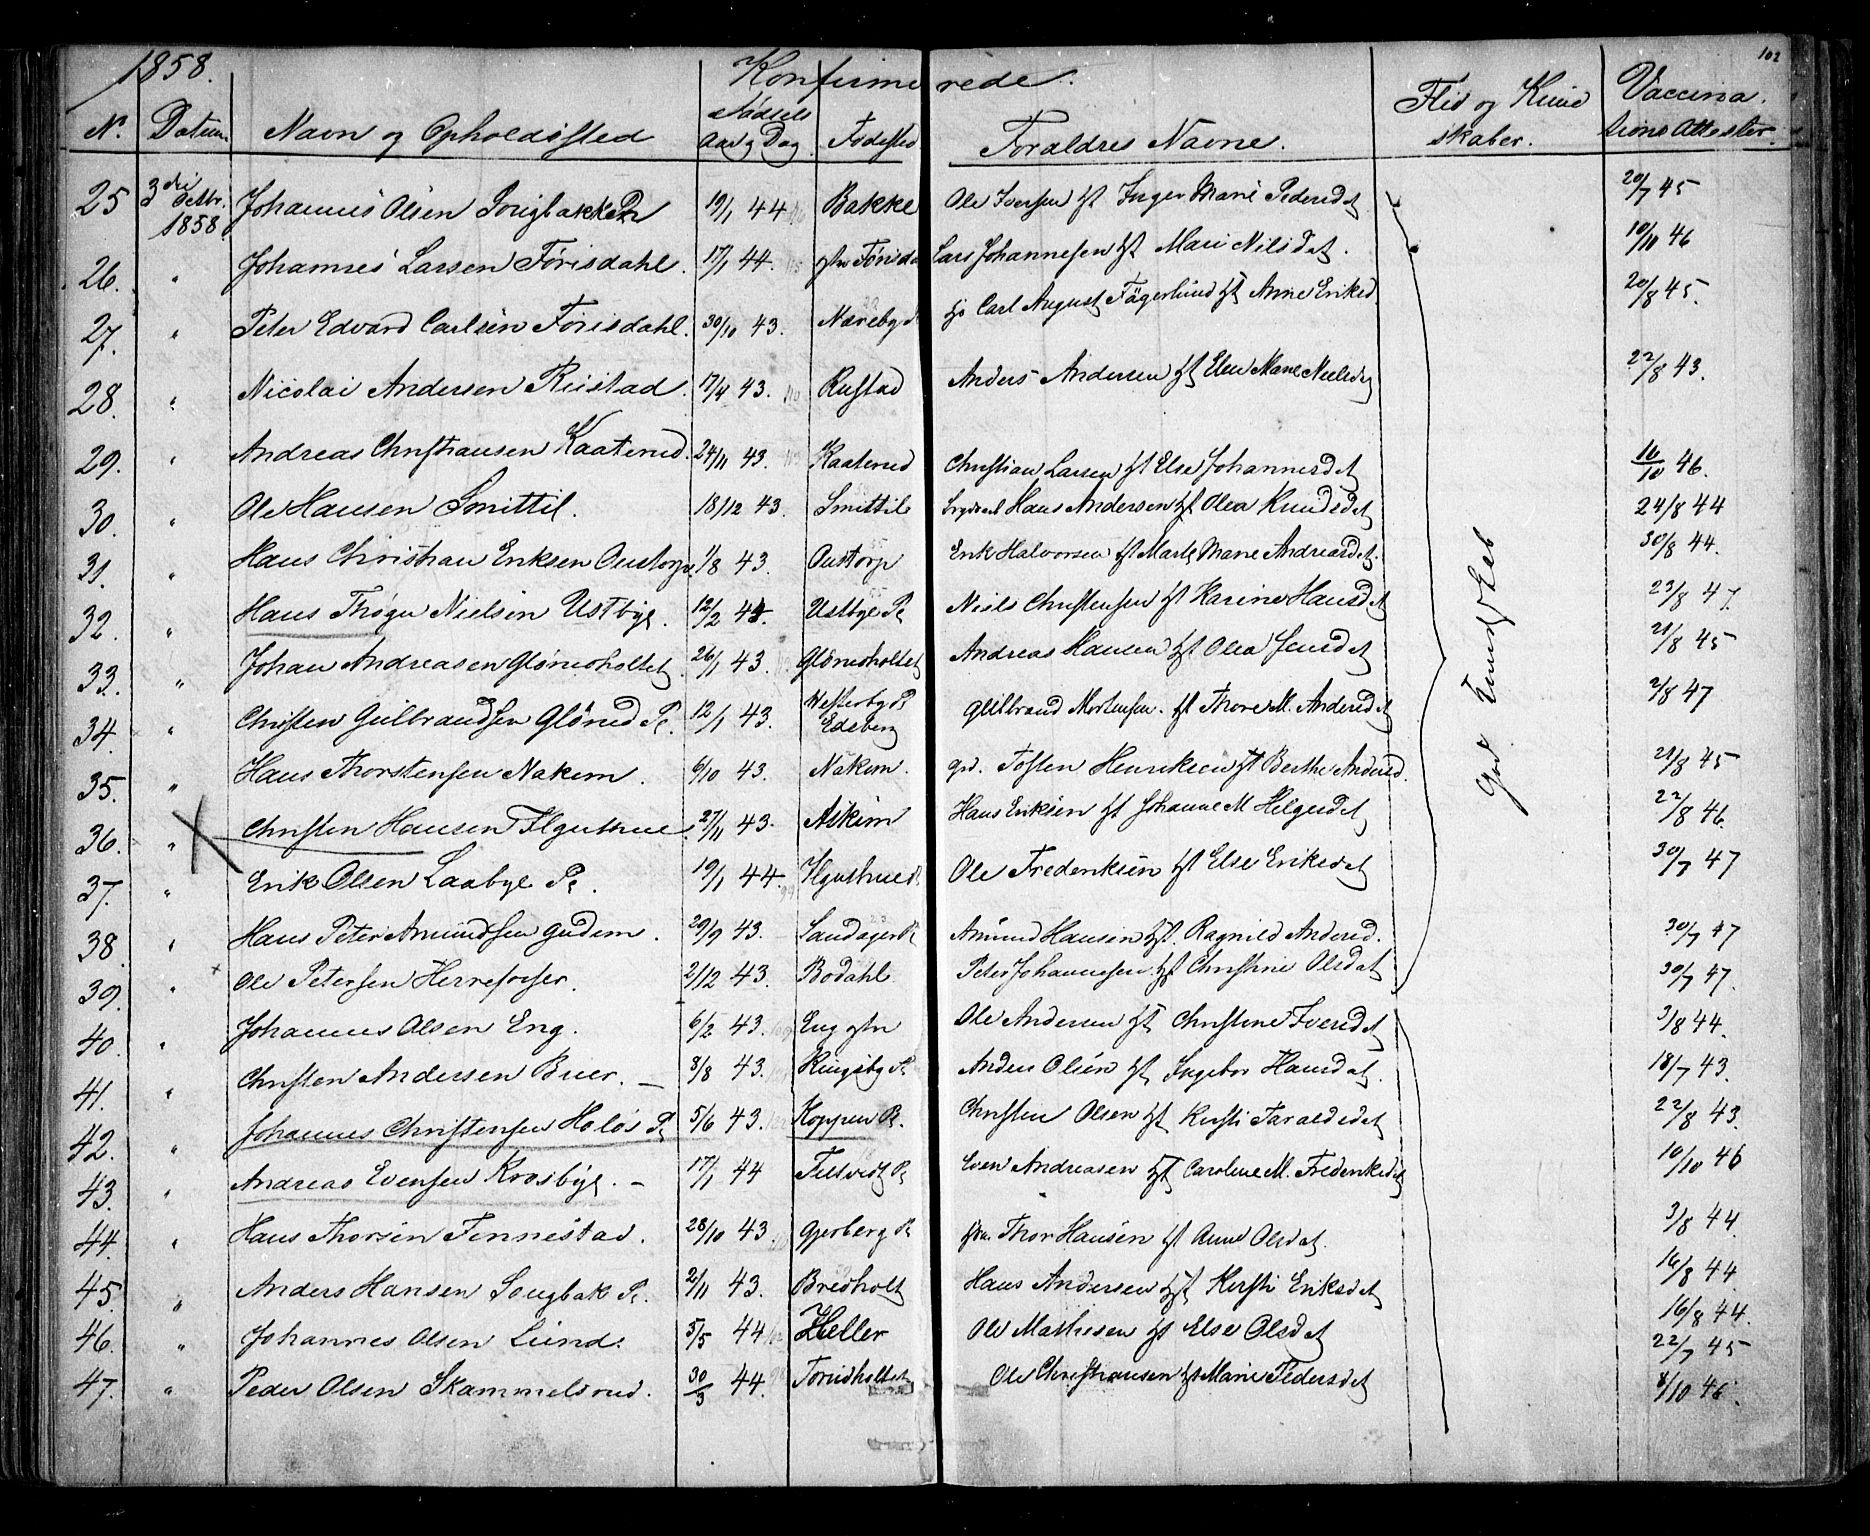 1858.
Konfirmerede.
102
Nr. Datum Navn og Opholdssted Fødsels Aar og Dag Fødested Forældres Navne. Flid og Kundskaber. Vaccinations Attester.
25 3die Octbr. 1858 Johannes Olsen 19/1 44 Bakke Ole Iversen & Inger Marie Pedersdt 20/7 45
26. " Johannes Larsen Førisdahl. 17/1 44. Førisda Lars Johannesen & Mari Nilsdat. 10/10 46
27. " Peter Edvard Carlsen Førisdahl. 30/10 43. Næreby Carl August Fägerlund & Anne Eriksd 20/8 45.
28. " Nicolai Andersen Rustad. 17/4 43. Rustad Anders Andersen & Elen Marie Neelsdt 22/8 43.
29. " Andreas Christiansen Kaaterud. 24/11 43. Kaaterud Christian Larsen & Else Johannesdt 16/10 46.
30. " Ole Hansen Smittil. 18/12 43. Smittil Hans Andersen & Olea Knudsdt 24/8 44
31. " Hans Christian Eriksen Oustorp. 1/8 43. Oustorp Erik Halvorsen & Marte Marie Andreasdt. 30/8 44.
32. " Hans Nielsen Ustbye. 12/2 43. Ustbye Pl Niels Christensen & Karine Hansdt 23/8 47.
33. " Johan Andreasen Glønesholtet. 26/1 43. Glønesholtet Andreas Hansen & Olea Jensdt 21/8 45
34. " Christen Gulbrandsen Glørud Pl. 12/1 43. Westerby Pl Edsberg Gulbrand Mortensen & Thore M. Andersdt 2/8 47
35. " Hans Thorstensen Nakem. 6/10 43. Nakem. Tosten Henriksen & Berthe Andersd. 21/8 45
36. " Christen Hansen Ilgusthue. 27/11 43. Askim Hans Eriksen & Johanne M. Helgesdt 22/8 46.
37. " Erik Olsen Laabye Pl. 19/1 44. Ilgusthue Pl Ole Fredriksen & Else Eriksdt 30/7 47
38. " Hans Peter Amundsen Gudem. 29/9 43. Sandager Pl Amund Hansen & Ragnild Andersd. 30/7 47
39. " Ole Petersen Herrefosser. 2/12 43. Bodahl Peter Johannesen & Christine Olsdt 30/7 47.
40. " Johannes Olsen Eng. 6/2 43. Eng Ole Andersen & Christine Iversdt 3/8 44.
41. " Christen Andersen Buer. — 8/8 43. Ringsby Pl Anders Olsen & Ingebor Hansdt. 18/7 43.
42. " Johannes Christensen Holøs Pl 5/6 43. Koppen Pl. Christen Olsen & Kirsti Taraldsdt 22/8 43.
43. " Andreas Evensen Krosbye. — 17/1 44 Tilsvidt Pl Even Andreasen & Caroline M. Fredriksdt 10/10 46
44. " Hans Thorsen Finnestad. 28/10 43. Gjerberg Pl Thor Hansen & Anne Olsdat. 3/8 44.
45. " Anders Hansen Songbak Pl. 2/11 43. Bredholt Hans Andersen & Kirsti Eriksdt 16/8 44
46. " Johannes Olsen Lund. 5/5 44 Heller Ole Mathisen & Else Olsdt 16/8 44.
22/7 45
47. " Peder Olsen Skammelsrud. 30/3 44. Torudholtet Ole Christiansen & Marie Pedersdt 8/10 46.
God Kundskab